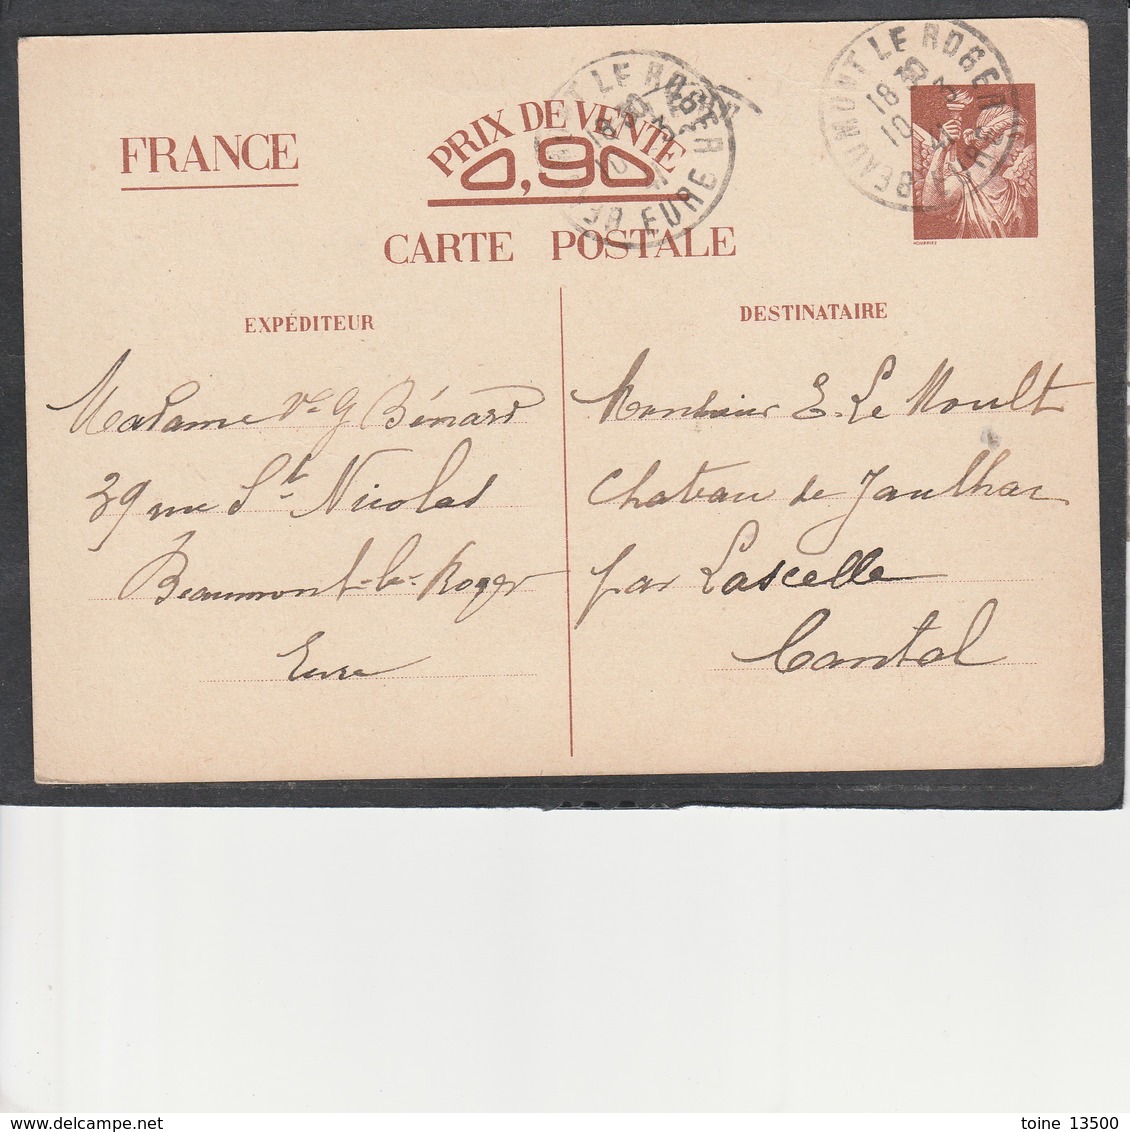 FRANCE
PRIX DE VENTE
0,90
CARTE POSTALE
BEAUMONT LE ROGER
EURE
BEAUMONT LE ROGER
EXPÉDITEUR
Madame Vve G Bénard
39 rue St Nicolas
Beaumont-le-Roger
Eure
DESTINATAIRE
Monsieur E. Le Moult
Chateau de Jaulhac
par Lascelle
Cantal
toine 13500